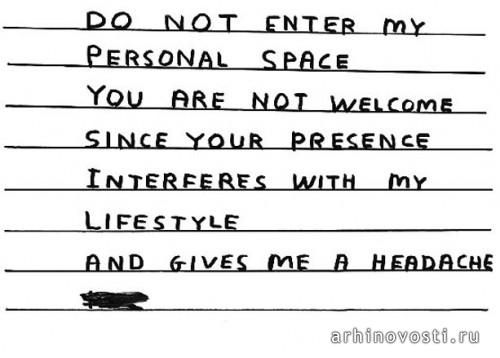 DO NOT ENTER MY
PERSONAL SPACE
YOU ARE NOT WELCOME
SINCE YOUR PRESENCE
INTERFERES WITH MY
LIFESTYLE
AND GIVES ME A HEADACHE
arhinovosti.ru